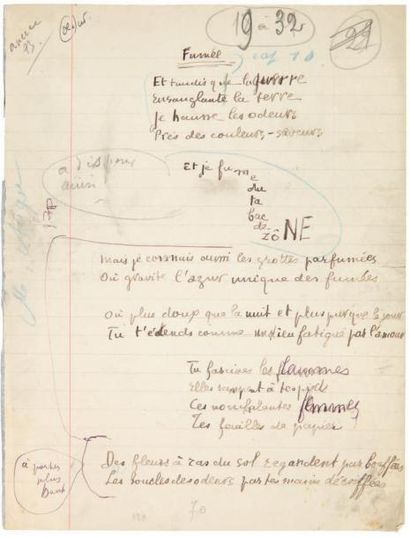 19 à 32
Fumée
cap 10
Et tandis que la guerre
Ensanglante la terre
Je hausse les odeurs
Près des couleurs-saveurs
à disposer
ainsi
Et je fume
du
ta
bac
de
zôNE
Mais je connais aussi les grottes parfumées
Où gravite l'azur unique des fumées
Où plus doux que la nuit et plus pur que le jour
Tu t'étends comme un dieu fatigué par l'amour
Tu fascines les flammes
Elles rampent à tes pieds
Ces nonchalantes femmes
Tes feuilles de papier
à porter
plus
haut
Des fleurs à ras du sol regardent par bouffées
Les boucles des odeurs par tes mains décoiffées
70